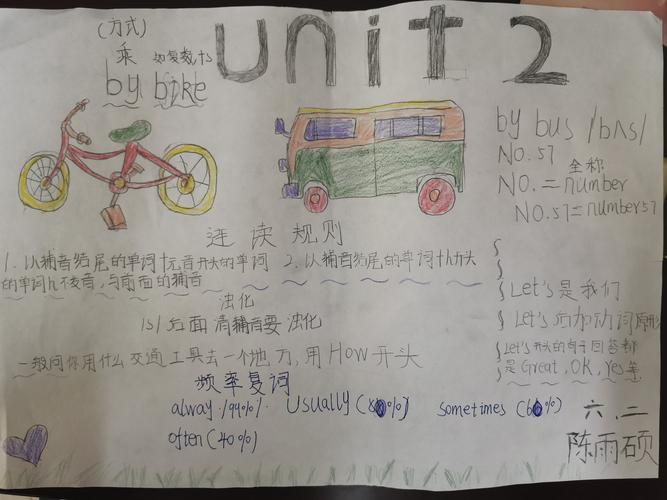 unit 2
(方式)
乘 加复数+s
by bike
by bus /bʌs/
NO.57
全称
NO.=number
NO.57=number57
连读规则
1.以辅音结尾的单词+元音开头的单词
2.以辅音结尾的单词+h开头
的单词h不发音,与前面的辅音
浊化
/s/后面清辅音要浊化
Let's是我们
Let's后加动词原形
Let's开头的句子回答都
是Great,OK,Yes等
一般问你用什么交通工具去一个地方,用How开头
频率复词
alway(99%) Usually(80%) sometimes(60%)
often(40%)
六.二
陈雨硕